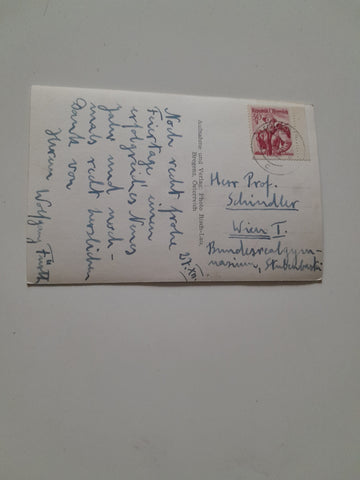 Noch recht frohe
Feiertage einen
erfolgreiches Neues
Jahr und noch-
mals recht herzlichen
Dank von
Ihrem Wolfgang Fürth
27. XII.
Aufnahme und Verlag: Photo Risch-Lau,
Bregenz, Österreich
Herr Prof.
Schindler
Wien I.
Bundesrealgym-
nasium, Stubenbastei